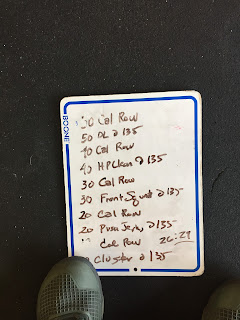 BOONE
50 Cal Row
50 DL @ 135
40 Cal Row
40 HP Clean @ 135
30 Cal Row
30 Front Squat @ 135
20 Cal Row
20 Push Jerk @ 135
Cal Row 26:29
Cluster @ 135